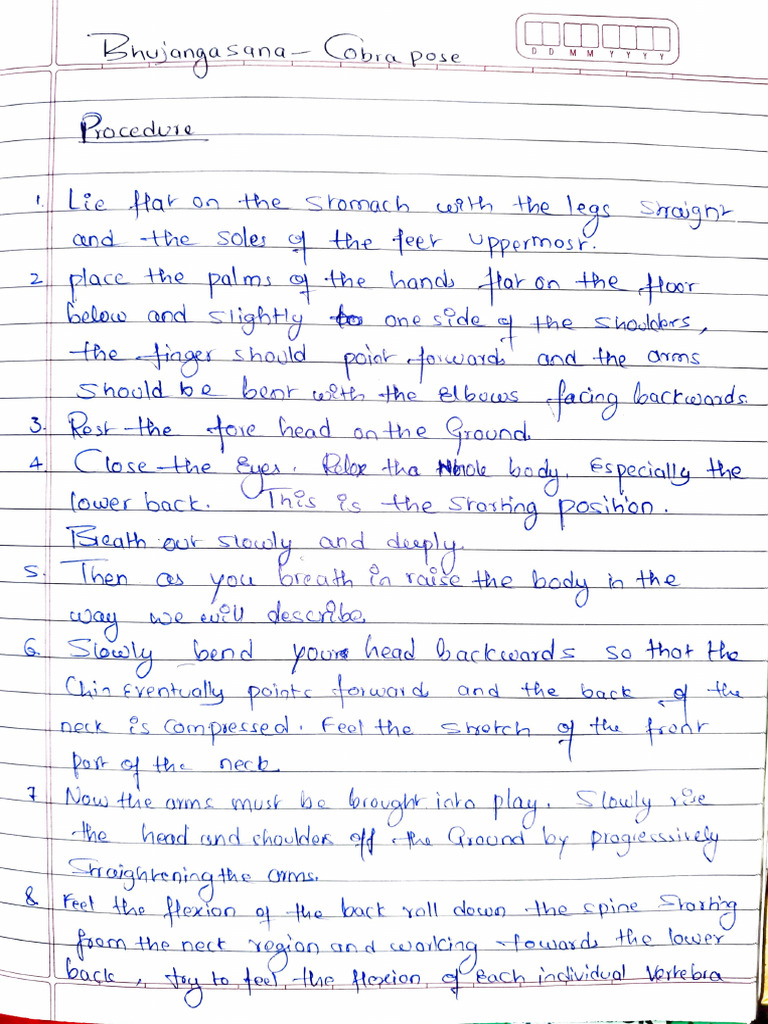 Bhujangasana - Cobra pose
D D M M Y Y Y Y
Procedure
1. Lie flat on the stomach with the legs straight
and the soles of the feet uppermost.
2. place the palms of the hands flat on the floor
below and slightly to one side of the shoulders,
the finger should point forwards and the arms
should be bent with the elbows facing backwards.
3. Rest the fore head on the Ground.
4. Close the Eyes. Relax the whole body. Especially the
lower back. This is the starting position.
Breath out slowly and deeply.
5. Then as you breath in raise the body in the
way we will describe.
6. Slowly bend your head backwards so that the
Chin Eventually points forward and the back of the
neck is compressed. Feel the stretch of the front
part of the neck
7 Now the arms must be brought into play. Slowly rise
the head and choulders off the Ground by progresssively
straightening the arms.
8. Feel the flexion of the back roll down the spine starting
from the neck region and working towards the lower
back, try to feel the flexion of Each individual vertebra